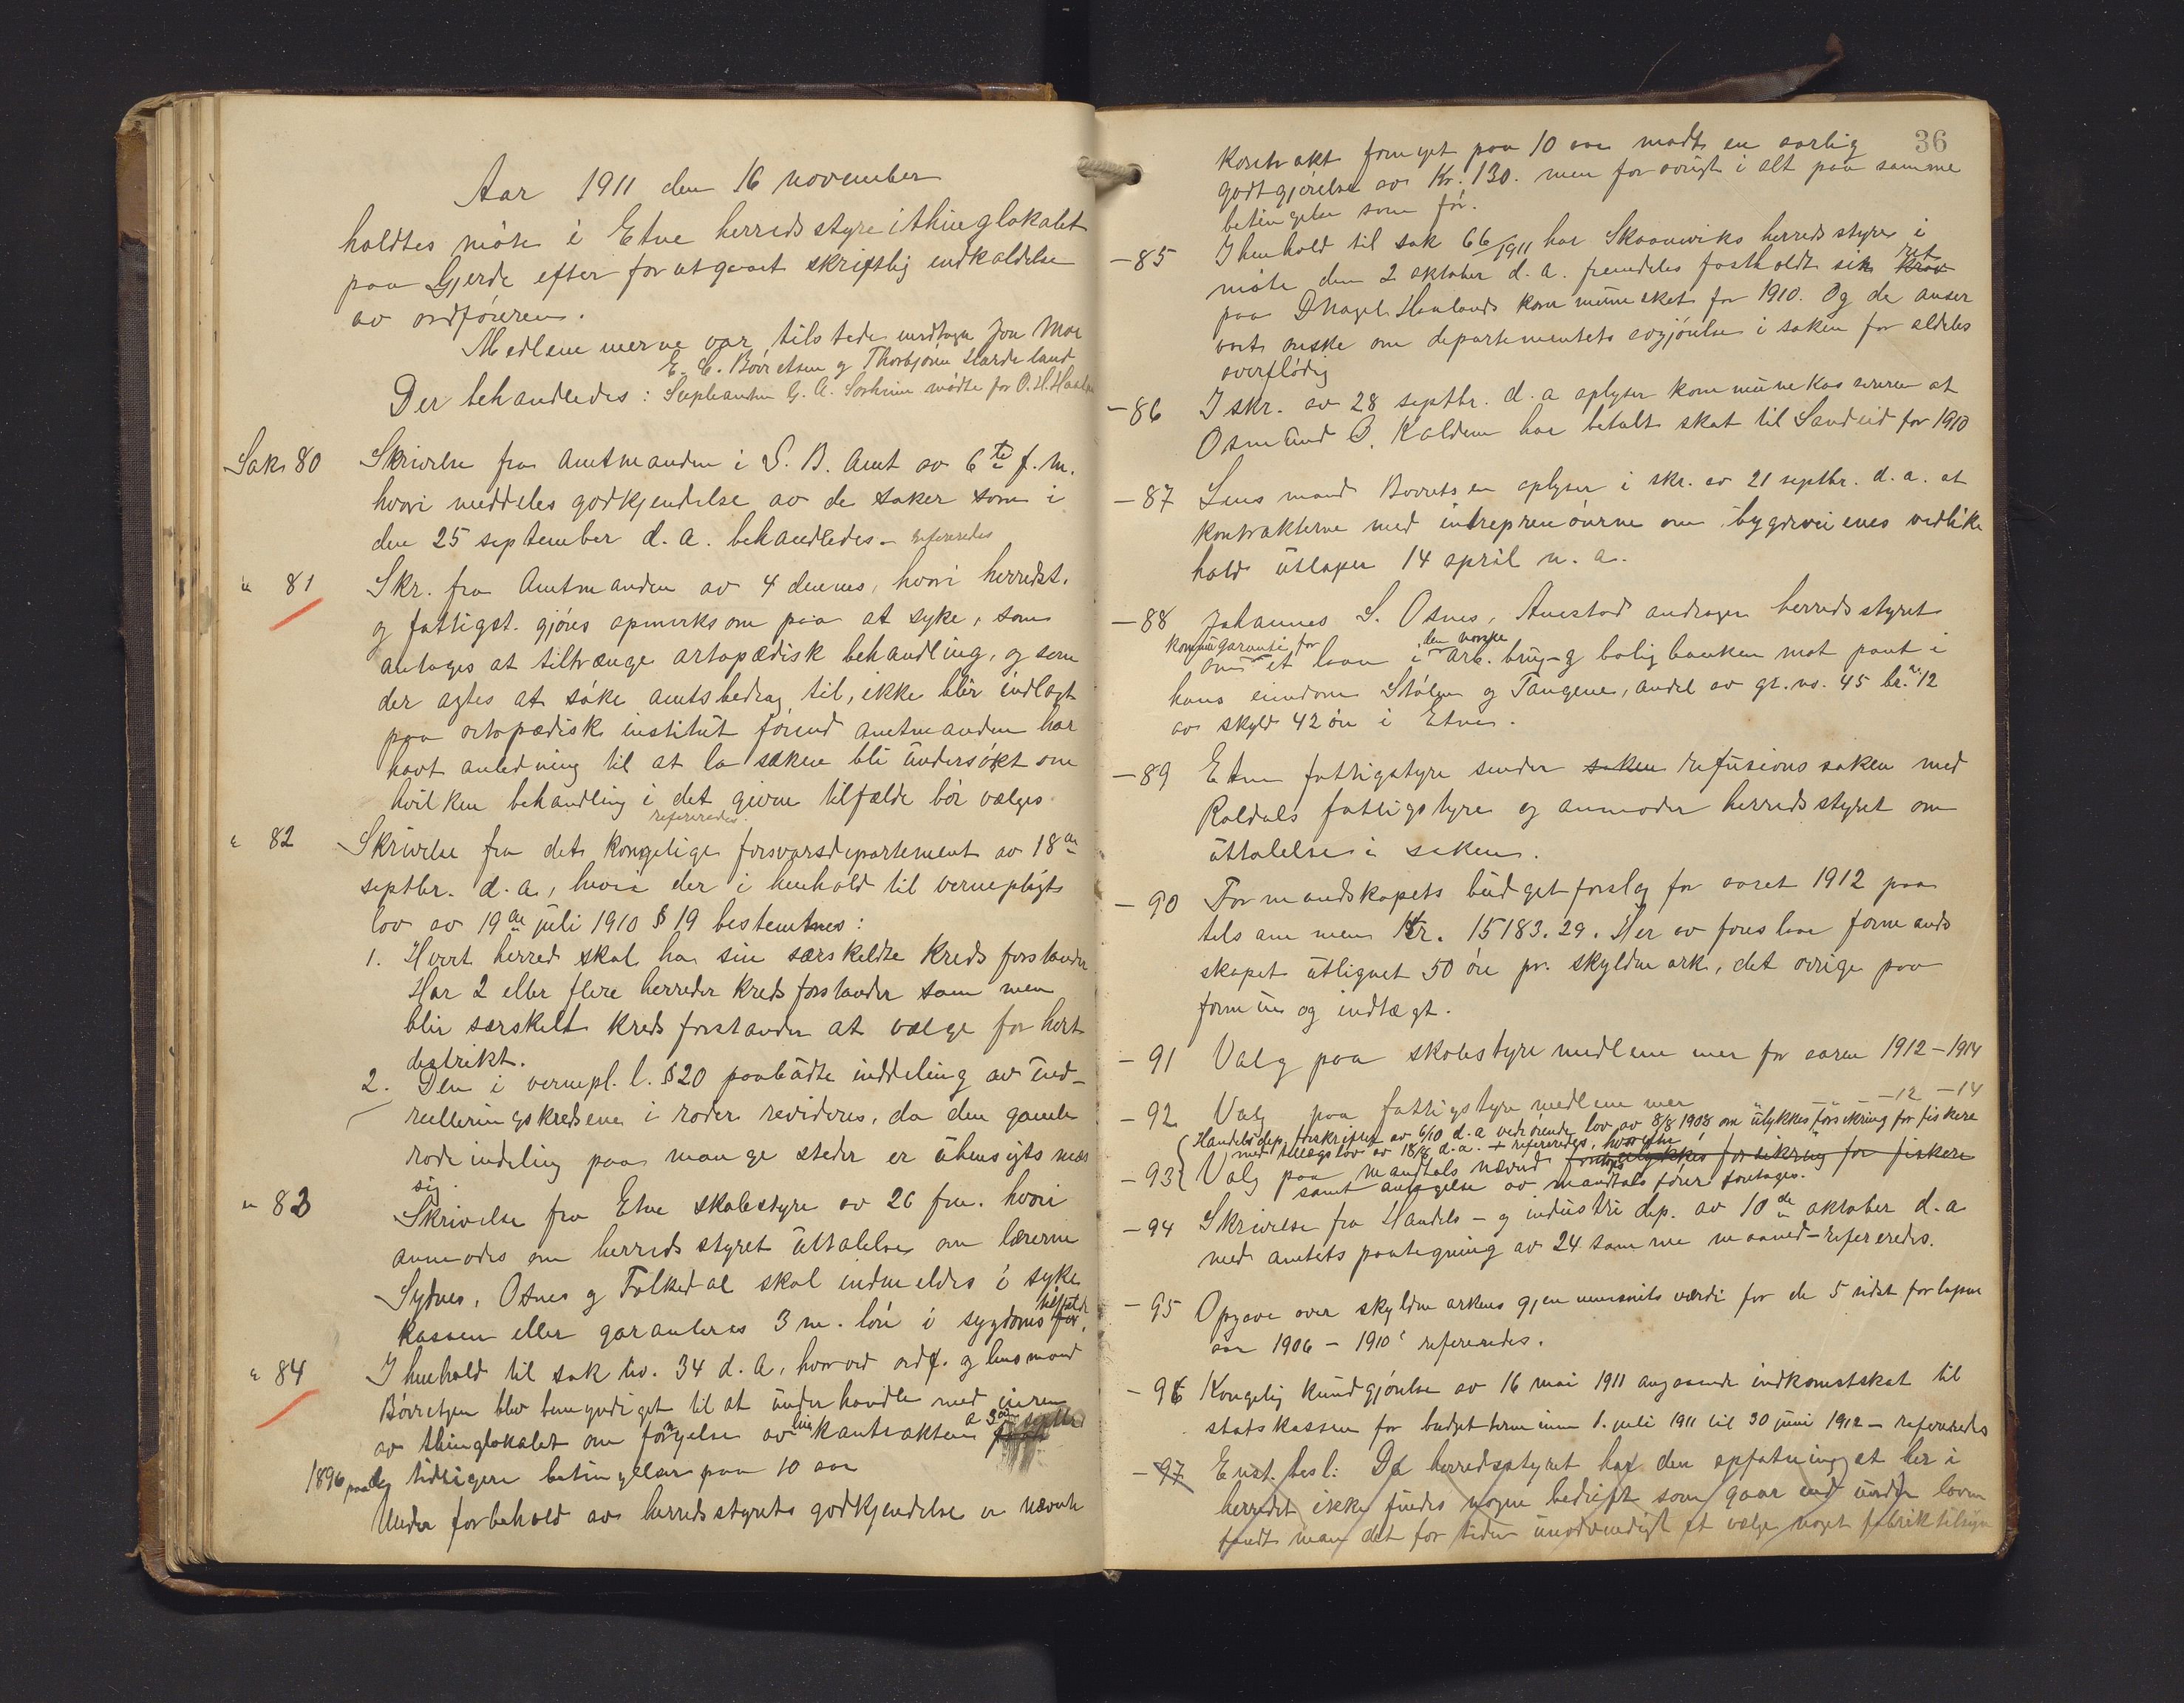 Aar 1911 den 16 november
holdtes möte i Etne herredsstyre i thinglokalet
paa Gjerde efter forutgaaet skriftlig indkaldelse
av ordföreren.
Medlemmerne var tilstede undtagen Jon Moe
E. C. Börretsen og Thorbjörn Harde land
Der behandledes: Supleanten G. A. Sörheim mödte for O. H. Haaland
Sak 80 Skrivelse fra Amtmanden i S. B. Amt av 6te f. m.
hvori meddeles godkjendelse av de saker som i
den 25 september d. a. behandledes. - refereredes
" 81 Skr. fra Amtmanden av 4 dennes, hvori herredst.
og fattigst. gjöres opmerksom paa at syke, som
antages at tiltrænge ortopædisk behandling, og som
der agtes at söke amtsbedrag til, ikke blir indlagt
paa ortopædisk institut förend amtmanden har
havt anledning til at la saken bli undersökt om
hvilken behandling i det givne tilfælde bör vælges
refereredes.
" 82 Skrivelse fra det kongelige forsvarsdepartement av 18de
septbr. d. a., hvori der i henhold til vernepligts
lov av 19de juli 1910 § 19 bestemtes:
1. Hvert herred skal ha sin særskeldte kredsforstander
Har 2 eller flere herreder kredsforstander sammen
blir særskelt kredsforstander at vælge for hert
destrikt.
2. Den i vernepl. l. § 20 paabudte inddeling av ud-
rulleringskredsene i roder revideres, da den gamle
rodeindeling paa mange steder er uhensigtsmæs
sig.
" 83 Skrivelse fra Etne skolestyre av 26 f.m. hvori
anmodes om herredsstyret uttalelse om lærerne
Sydnes, Osnes og Folkedal skal indmeldes i syke
kassen eller garanteres 3 m. lön i sygdomstilfælde
" 84 I henhold til sak no. 34 d. a, hvorved ordf. og lensmand
Börretzen blev bemyndiget til at underhandle med eieren
av thinglokalet om fornyelse av leiekontrakten a 30 septbr
1896 paa de tidligere betingelser paa 10 aar
Under forbehold av herredsstyrets godkjendelse er nævnte
36
kontrakt fornyet paa 10 aar modt en aarlig
godtgjörelse av Kr. 130. men for övrigt i alt paa samme
betingelser som för.
- 85 I henhold til sak 66/1911 har Skaanviks herredsstyre i
möte den 2 oktober d. a. fremdeles fastholdt sin krav ret
paa D Nagel Haalands kommuneskat for 1910. Og de anser
vort önske om departementets avgjörelse i saken for aldeles
overflödig
- 86 I skr. av 28 septbr. d. a oplyser kommunekassereren at
Osmund O. Kaldem har betalt skat til Sandeid for 1910
- 87 Lensmand Borretsen oplyser i skr. av 21 septbr. d. a. at
kontrakterne med entreprenöurne om bygdeveienes vedlike
hold utlöper 14 april n. a.
- 88 Johannes S. Osnes, Anestad andrager herredsstyret
komunegaranti for den norske
om et laan i arb. brug- og boligbanken mot pant i
hans eiendom Stölen og Tangene, andel av gr. no. 45 br. n. 12
av skyld 42 öre i Etne.
- 89 Etne fattigstyre sender saken refusionssaken med
Röldals fattigstyre og anmoder herredsstyret om
uttalelse i saken.
- 90 Formandskapets budgetforslag for aaret 1912 paa
tilsammen Kr. 15183.29. Herav foreslaar formands
skapet utlignet 50 öre pr. skyldmark, det övrige paa
formue og indtægt.
- 91 Valg paa skolestyremedlemmer for aarene 1912 - 1914
- 92 Valg paa fattigstyremedlemmer " - " - 12 - 14
Handelsdep. forskrifter av 6/10 d. a vedrörende lov av 8/8 1908 om ulykkesforsikring for fiskere
med tillægslov av 18/8 d. a. + refereredes, hvorefter
- 93 Valg paa mandtalsnævnd for ulykkesforsikring for fiskere
samt antagelse av mandtalsförer foretages.
- 94 Skrivelse fra Handels- og industri dep. av 10de oktober d. a
med amtets paategning av 24 samme maaned - refereredes.
- 95 Opgave over skyldmarkens gjennemsnitsværdi for de 5 sidst forløpne
aar 1906 - 1910 refereredes.
- 96 Kongelig kundgjörelse av 16 mai 1911 angaaende indkomstskat til
statskassen for budgetterminen 1. juli 1911 til 30 juni 1912 - refereredes
- 97 Enst. besl: Da herredsstyret har den opfatning, at her i
herredet ikke findes nogen bedrift som gaar ind under loven
fandt man det for tiden unödvendigt at vælge noget fabriktilsyn